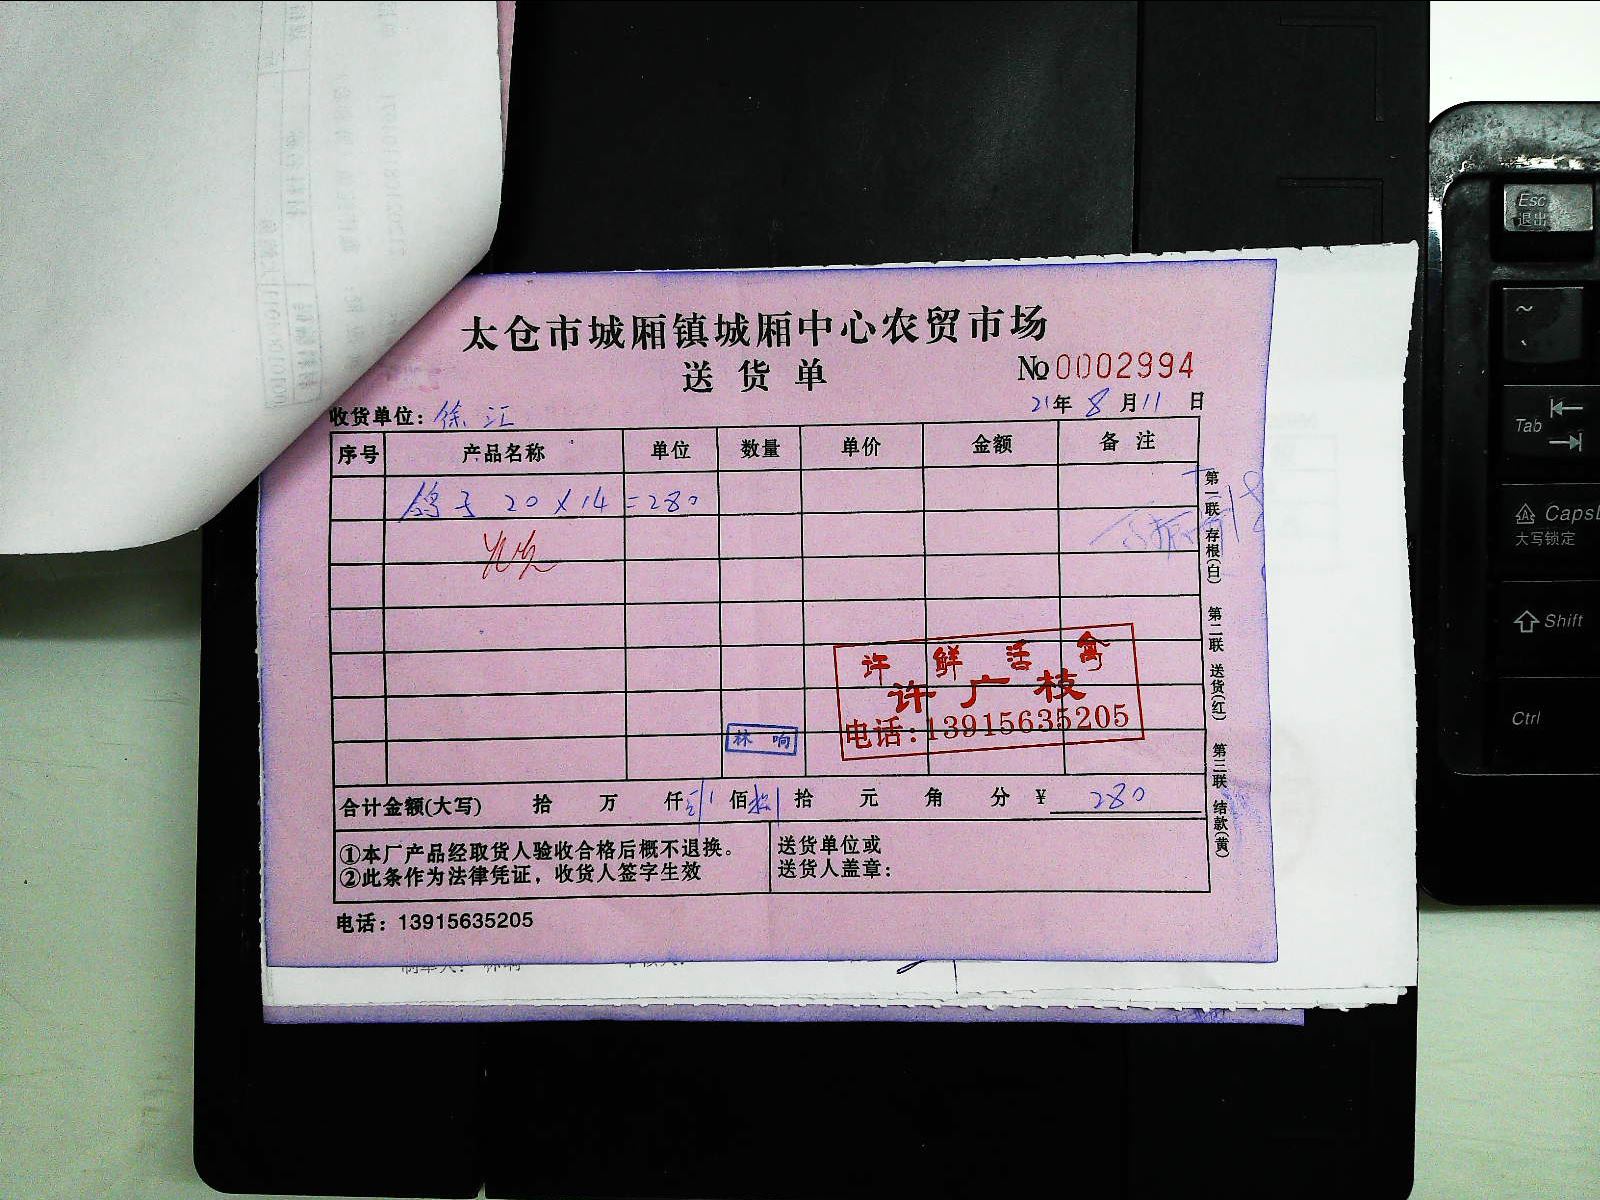 太仓市城厢镇城厢中心农贸市场
送货单
№0002994
收货单位：徐汇
21年8月11日
序号 产品名称 单位 数量 单价 金额 备注
鸽子 20×14=280
许鲜活禽
许广枝
电话：13915635205
林响
合计金额(大写) 拾 万 仟 佰 拾 元 角 分 ¥ 280
①本厂产品经取货人验收合格后概不退换。
②此条作为法律凭证，收货人签字生效
送货单位或
送货人盖章：
电话：13915635205
第一联 存根(白) 第二联 送货(红) 第三联 结款(黄)
Esc
退出
~
Tab
大写锁定
Shift
Ctrl